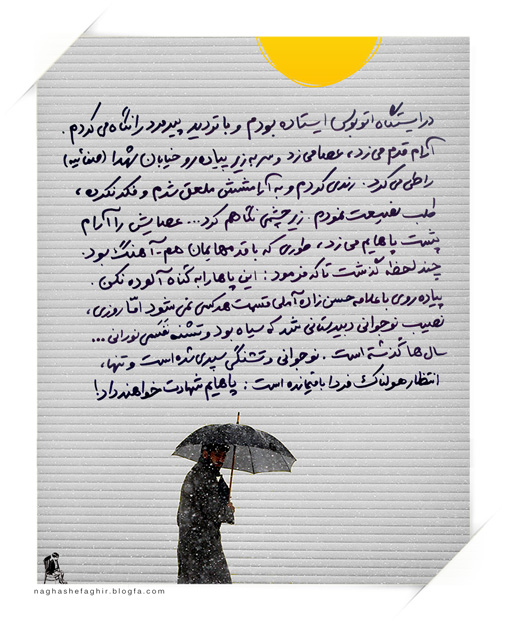 در ایستگاه اتوبوس ایستاده بودم و با تردید پیرمرد را نگاه می کردم.
آرام قدم می زد، عصا می زد و سر به زیر پیاده رو خیابان شهدا (صفائیه)
را طی می کرد. رندی کردم و به آرامشش ملحق شدم و فکر نکرده،
طلب نصیحت نمودم. زیرچشمی نگاهم کرد... عصایش را آرام
پشت پاهایم می زد، طوری که با قدمهایمان هم-آهنگ بود.
چند لحظه گذشت تا که فرمود: این پاها را به گناه آلوده نکن.
پیاده روی با علامه حسن زاده آملی قسمت هرکسی نمی شود اما روزی،
نصیب نوجوانی دبیرستانی شد که سیاه بود و تشنه نفسی نورانی...
سال ها گذشته است. نوجوانی و تشنگی سپری شده است و تنها،
انتظار هولناک فردا باقیمانده است: پاهایم شهادت خواهند داد!
naghashefaghir.blogfa.com